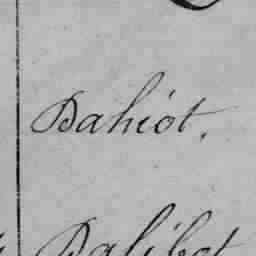 Dahiot.
Dalibot